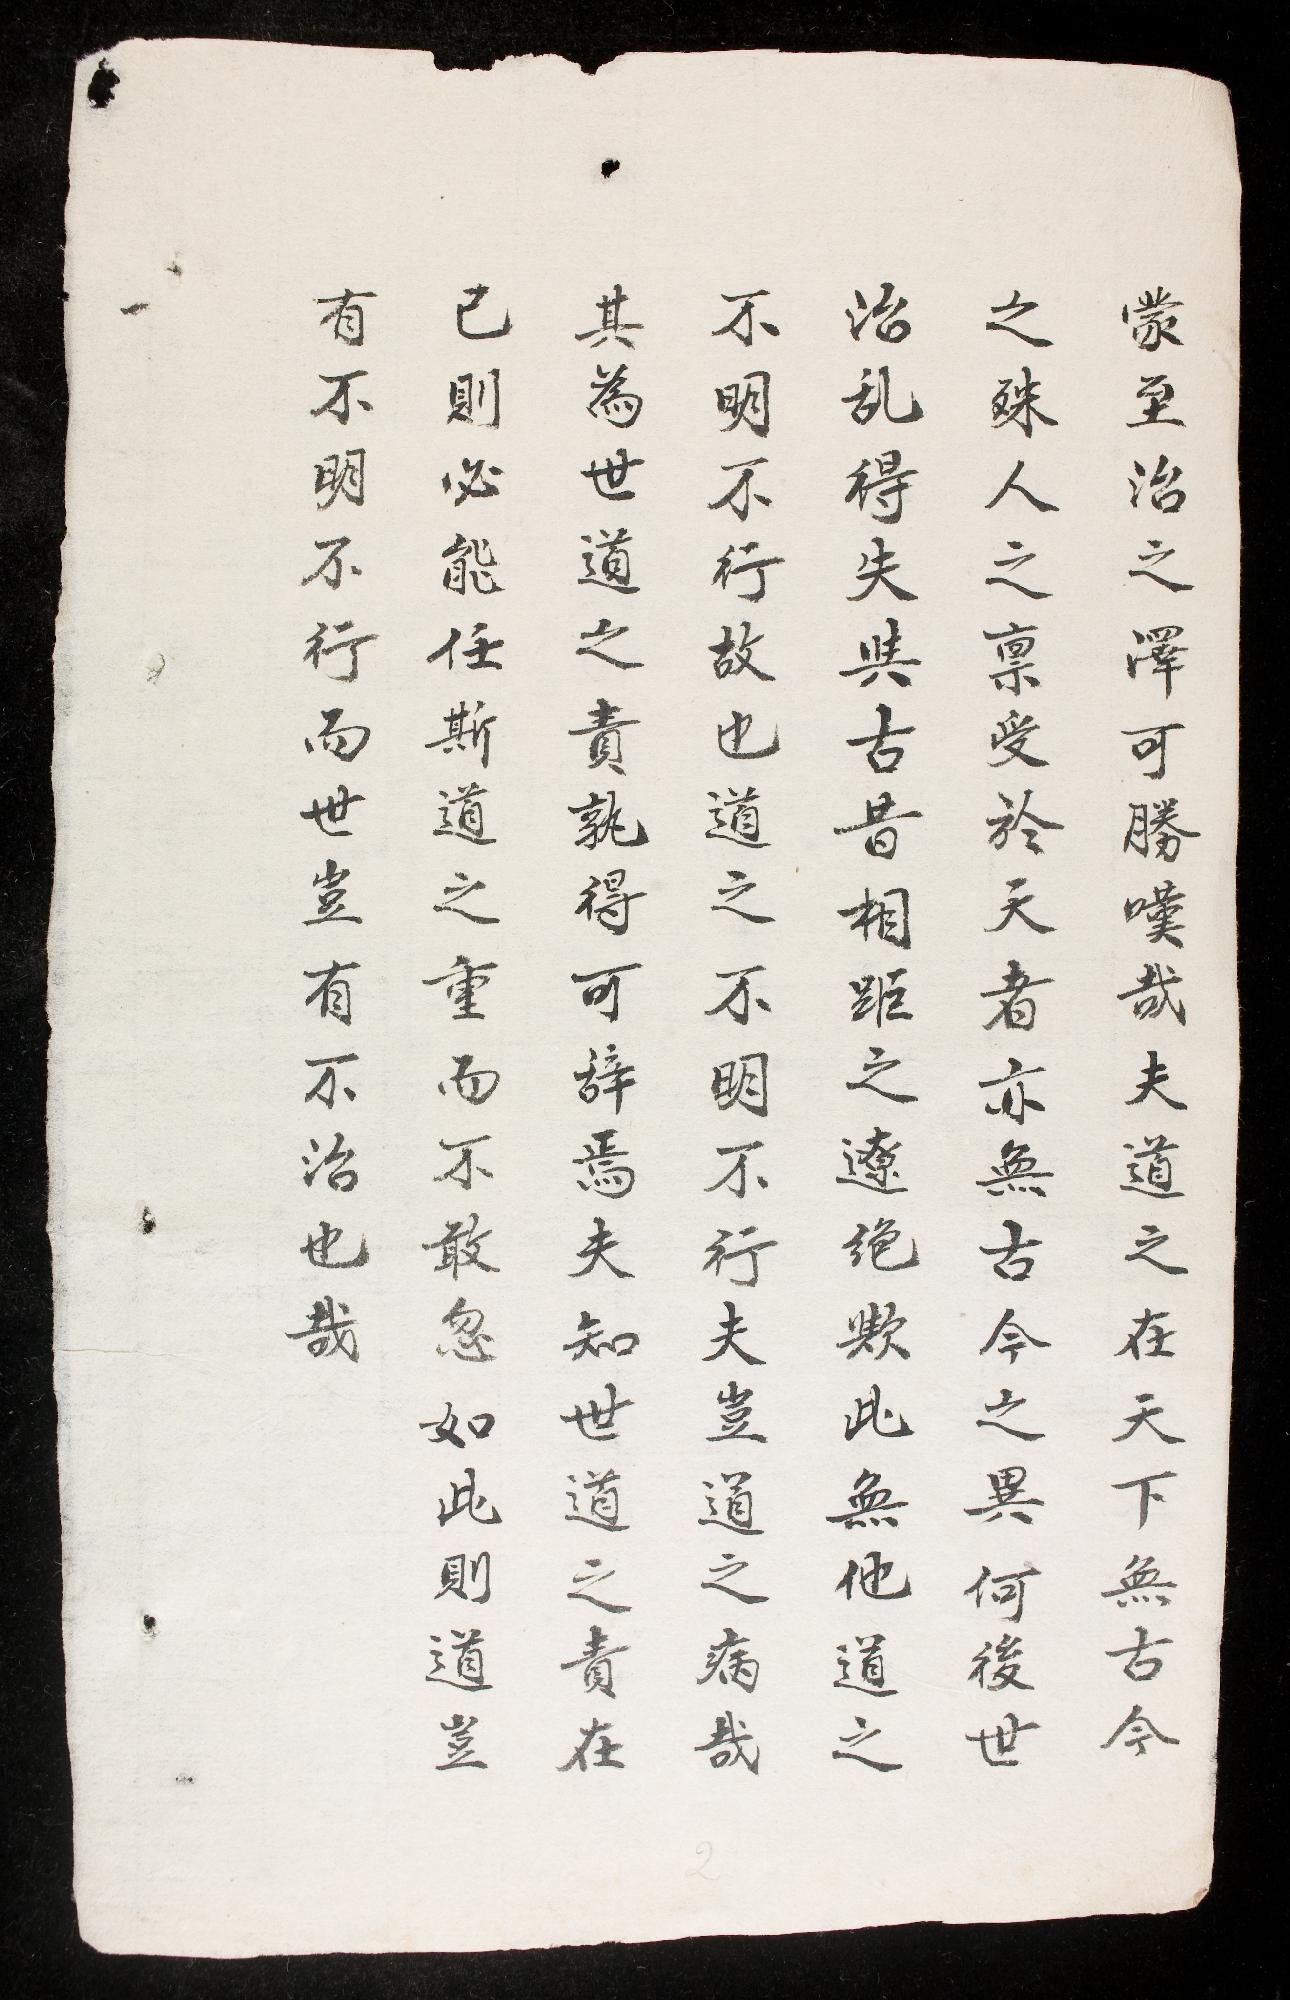 蒙至治之澤可勝嘆哉夫道之在天下無古今
之殊人之稟受於天者亦無古今之異何後世
治乱得失與古昔相距之遼絶歟此無他道之
不明不行故也道之不明不行夫豈道之病哉
其為世道之責孰得可辞焉夫知世道之責在
已則必能任斯道之重而不敢忽如此則道豈
有不明不行而世豈有不治也哉
2